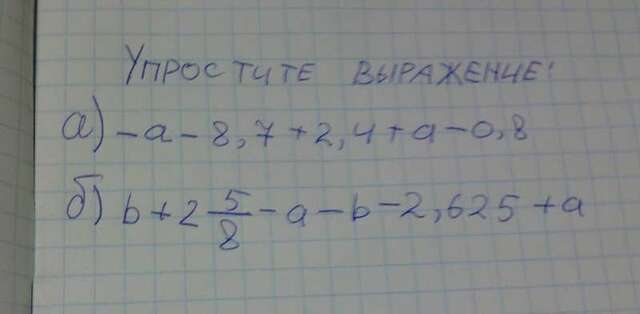 Упростите выражение:
а) -а-8,7+2,4+а-0,8
б) b+2 5/8-а-b-2,625+а